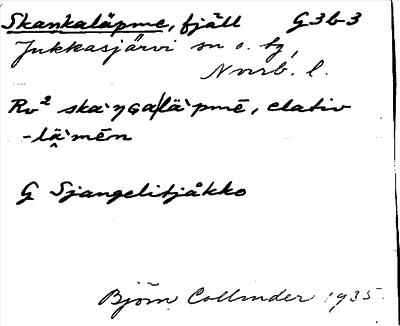 Skankaläpme, fjäll G3b3
Jukkasjärvi sn o. tg,
Nmrb. l.
Rv² ska·ŋGa/lä·pmē, elativ
-lä̭·mēn
G Sjangelitjåkko
Björn Collinder 1935.